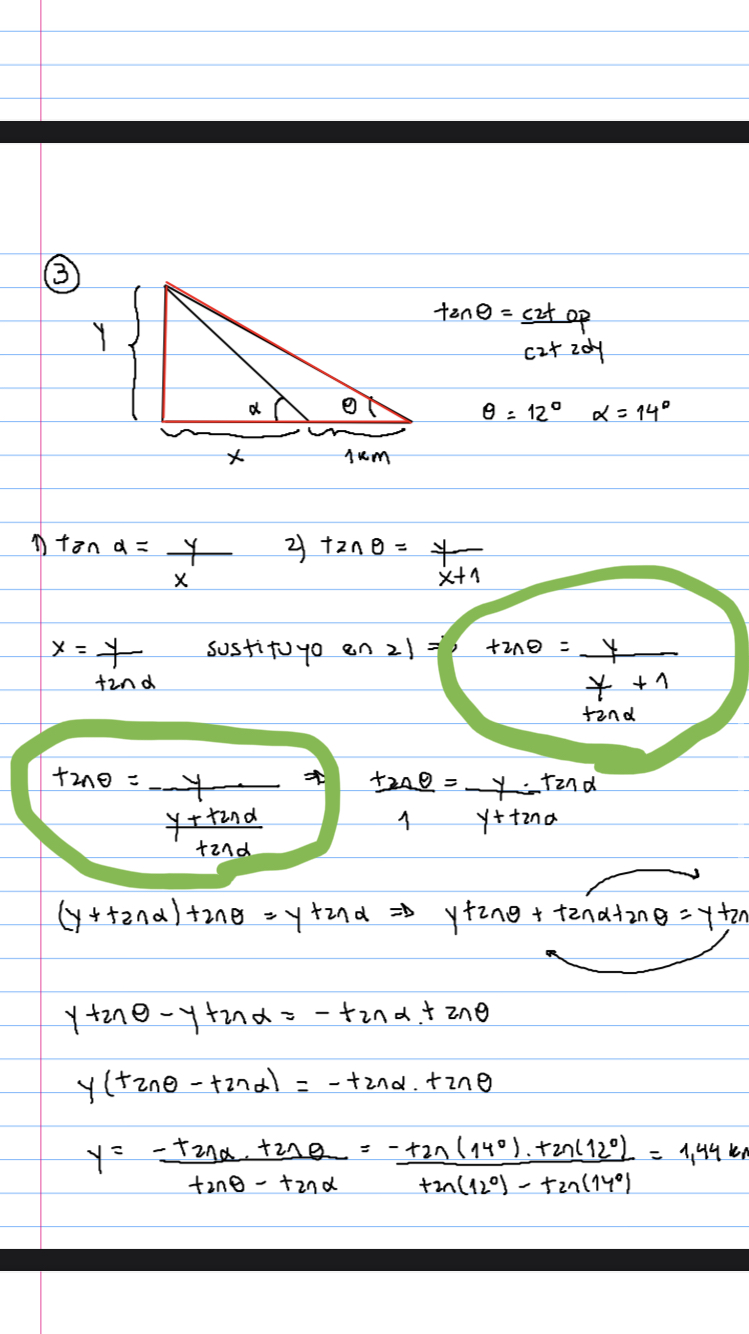 3
Y
α
θ
x
1km
tan θ = cat op / cat ady
θ = 12° α = 14°
1) tan α = y / x 2) tan θ = y / x+1
x = y / tan α sustituyo en 2) ⇒ tan θ = y / (y / tan α + 1)
tan θ = y / ((y + tan α) / tan α) ⇒ tan θ / 1 = y · tan α / y + tan α
(y + tan α) tan θ = y tan α ⇒ y tan θ + tan α tan θ = y tan
y tan θ - y tan α = - tan α . tan θ
y (tan θ - tan α) = - tan α . tan θ
y = - tan α . tan θ / tan θ - tan α = - tan (14°) . tan (12°) / tan (12°) - tan (14°) = 1,44 km